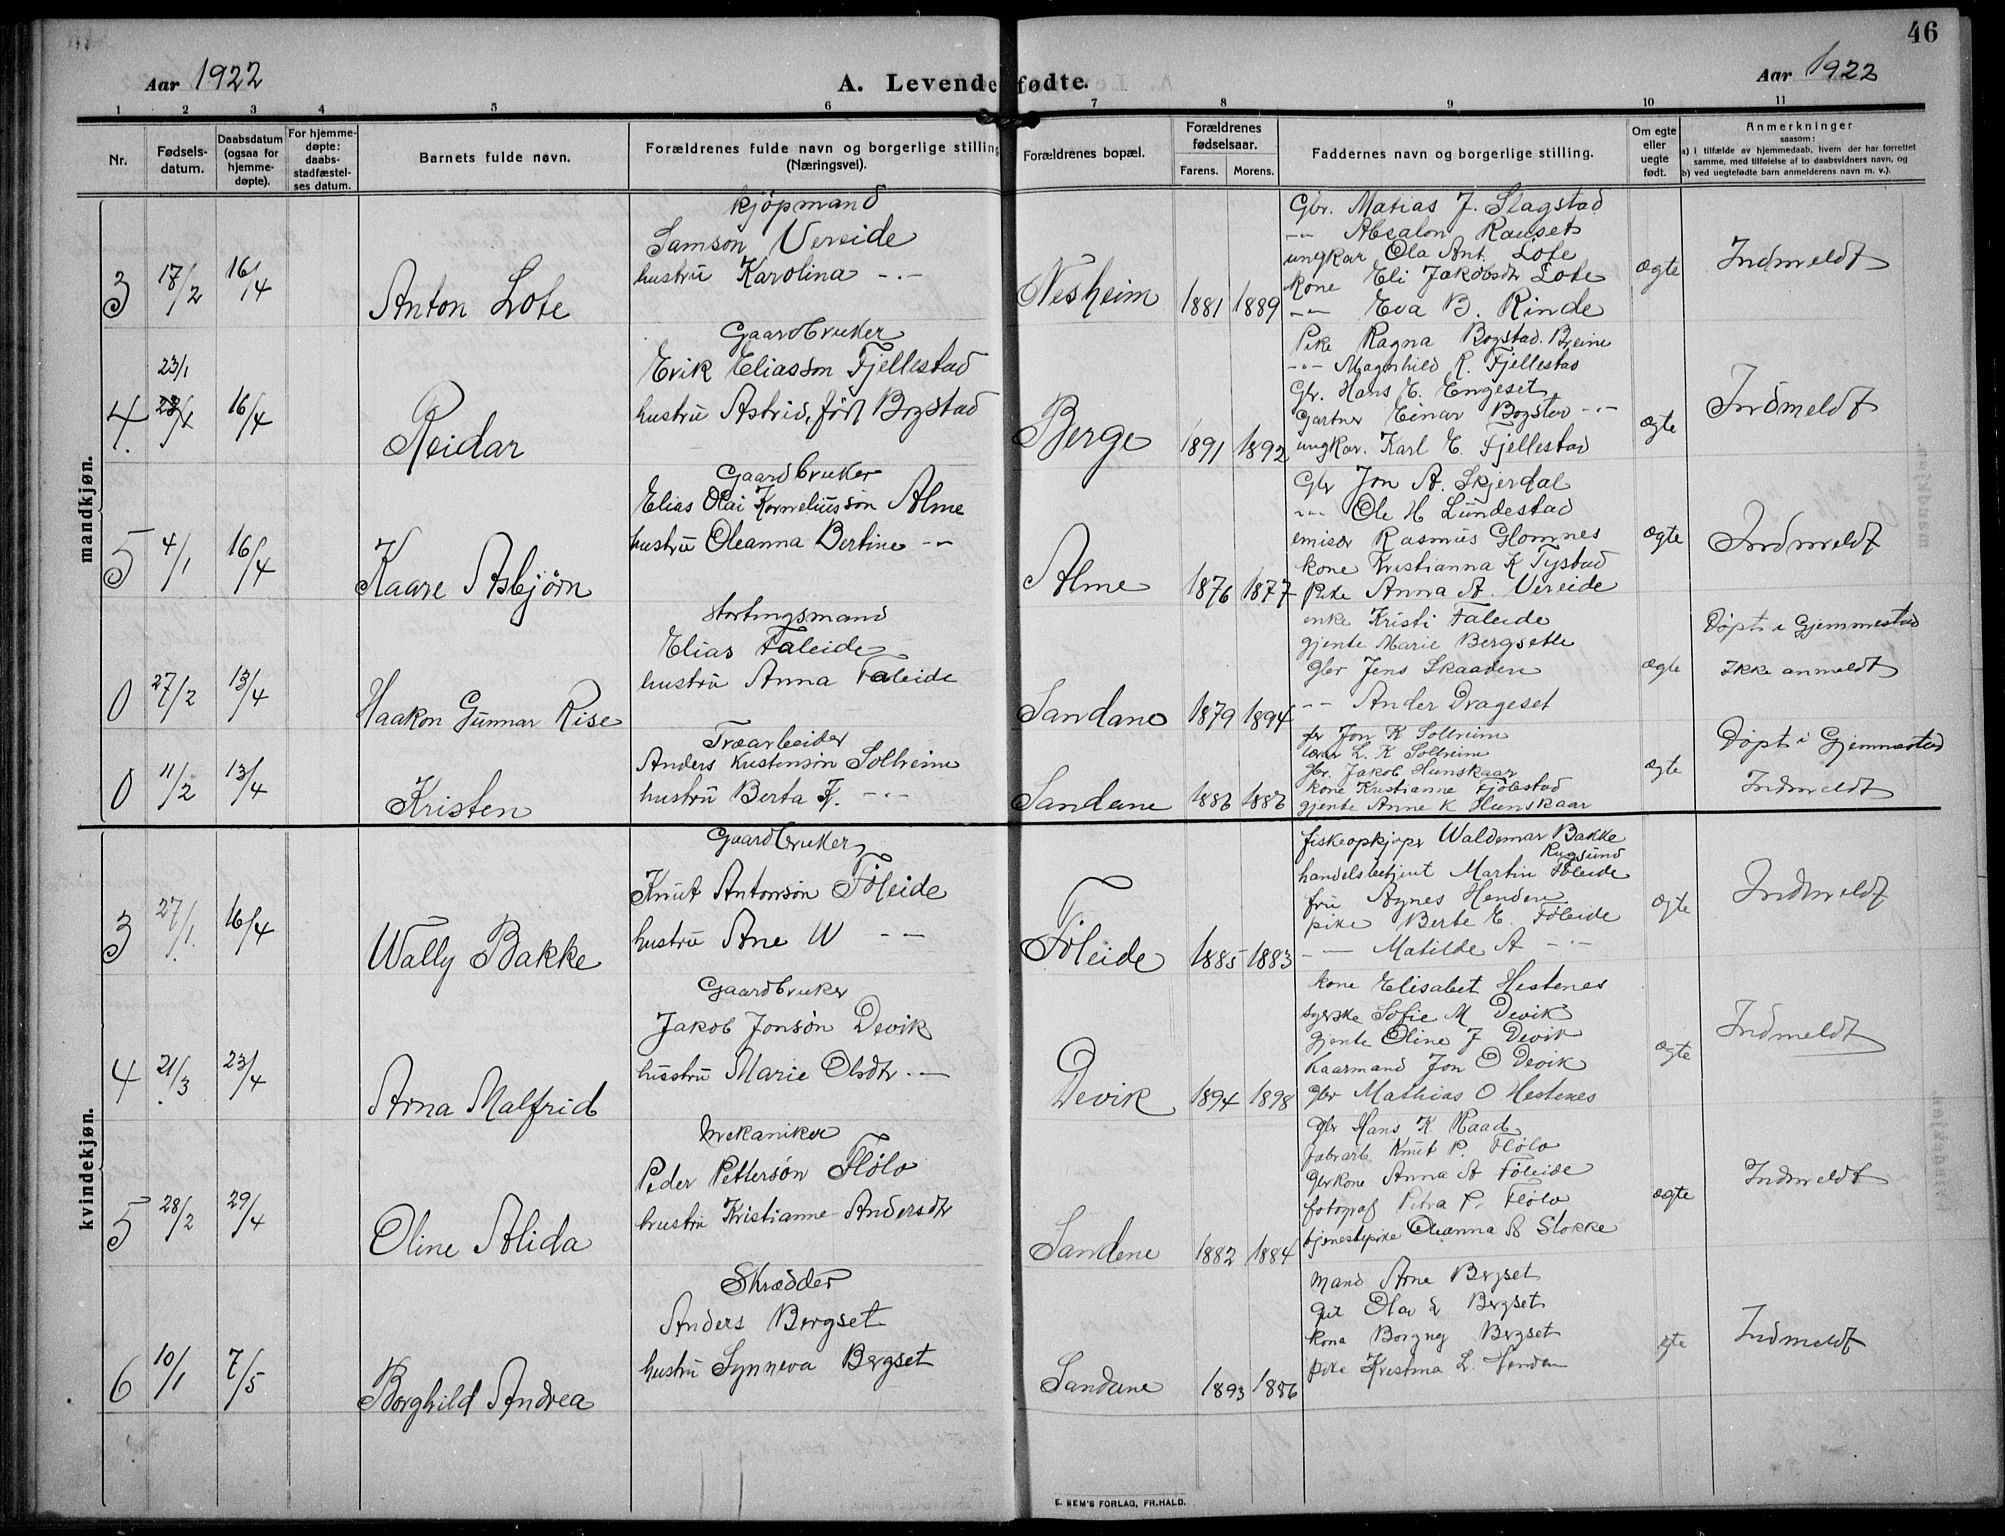 46
Aar 1922
A. Levendefødte.
Aar 1922
1 2 3 4 5 6 7 8 9 10 11
Nr.
Fødsels-
datum.
Daabsdatum
(ogsaa for
hjemme-
døpte).
For hjemme-
døpte:
daabs-
stadfæstel-
ses datum.
Barnets fulde navn.
Forældrenes fulde navn og borgerlige stilling
(Næringsvei).
Forældrenes bopæl.
Forældrenes
fødselsaar.
Farens. Morens.
Faddernes navn og borgerlige stilling.
Om egte
eller
uegte
født.
Anmerkninger
saasom:
a) i tilfælde av hjemmedaab, hvem der har forrettet
samme, med tilføielse af to daabsvidners navn, og
b) ved uegtefødte barn anmelderens navn m. v.).
mandkjøn.
3 17/2 16/4
Anton Lote
kjøpmand
Samson Vereide
hustru Karolina -"-
Nesheim 1881 1889
Gbr. Matias J. Slagstad
-"- Absalon Rauset
ungkar Ola Ant. Lote
kone Eli Jakobsdt Lote
-"- Eva B. Rinde
ægte
Indmeldt
23/1
4. 16/4
Reidar
Gaardbruker
Erik Eliasson Fjellestad
hustru Astrid, født Bogstad
Berge 1891 1892
Pike Ragna Bogstad. Bjeine
-"- Magnhild R. Fjellestad
Gbr. Hans E. Engeset
Gartner Einar Bogstad -"-
ungkar. Karl E. Fjellestad
ægte
Indmeldt
5 4/1 16/4
Kaare Asbjørn
Gaardbruker
Elias Olai Korneliussøn Alme
hustru Oleanna Bertine -"-
Alme 1876 1877
Gbr Jon A. Skjerdal
-"- Ole H Lundestad
emisær Rasmus Glomnes
kone Kristianna K Tystad
Pike Anna A. Vereide
ægte
Indmeldt
0 27/2 13/4
Haakon Gunnar Rise
stortingsmand
Elias Faleide
hustru Anna Faleide
Sandane 1879 1894
enke Kristi Faleide
gjente Marie Bergsete
gbr Jens Skaaden
-"- Ander Drageset
ægte
Døpt i Gjemmestad
Ikke anmeldt
0 11/2 13/4
Kristen
Træarbeider
Anders Kristensøn Solheim
hustru Berta K. -"-
Sandane 1886 1886
Jon K Solheim
lærer L. K Solheim
gbr. Jakob Hunskaar
kone Kristianne Fjølestad
gjente Anne K Hunskaar
ægte
Døpt i Gjemmestad
Indmeldt
kvindekjøn.
3 27/1. 16/4
Wally Bakke
Gaardbruker
Knut Antonsøn Føleide
hustru Ane W -"-
Føleide 1885 1883
fiskeopkjøper Waldemar Bakke
Rugsund
handelsbetjent Martin Føleide
fru Agnes Henden
pike Berte E. Føleide
-"- Matilde A -"-
ægte
Indmeldt
4 21/3 23/4
Arna Malfrid
Gaardbruker
Jakob Jonsøn Devik
hustru Marie Olsdtr. -"-
Devik 1894 1898
kone Elisabet Hestenes
syerske Sofie M Devik
gjente Oline J Devik
Kaarmand Jon O Devik
gbr Mathias O Hestenes
ægte
Indmeldt
5 28/2 29/4
Oline Alida
Mekaniker
Peder Pettersøn Flølo
hustru Kristianne Andersdtr
Sandene 1882 1884
gbr Hans K Raad
fabrarb Knut P. Flølo
gbrkone Anna A Føleide
fotograf Petra P. Flølo
tjenestepike Oleanna A Stokke
ægte
Indmeldt
6 10/1 7/5
Borghild Andrea
Skrædder
Anders Bergset
hustru Synneva Bergset
Sandane 1893 1886
Mand Arne Bergset
Olav Bergset
kona Borgny Bergset
pike Kristina L. Henden
egte
Indmeldt
E. SEM'S FORLAG, FR.HALD.